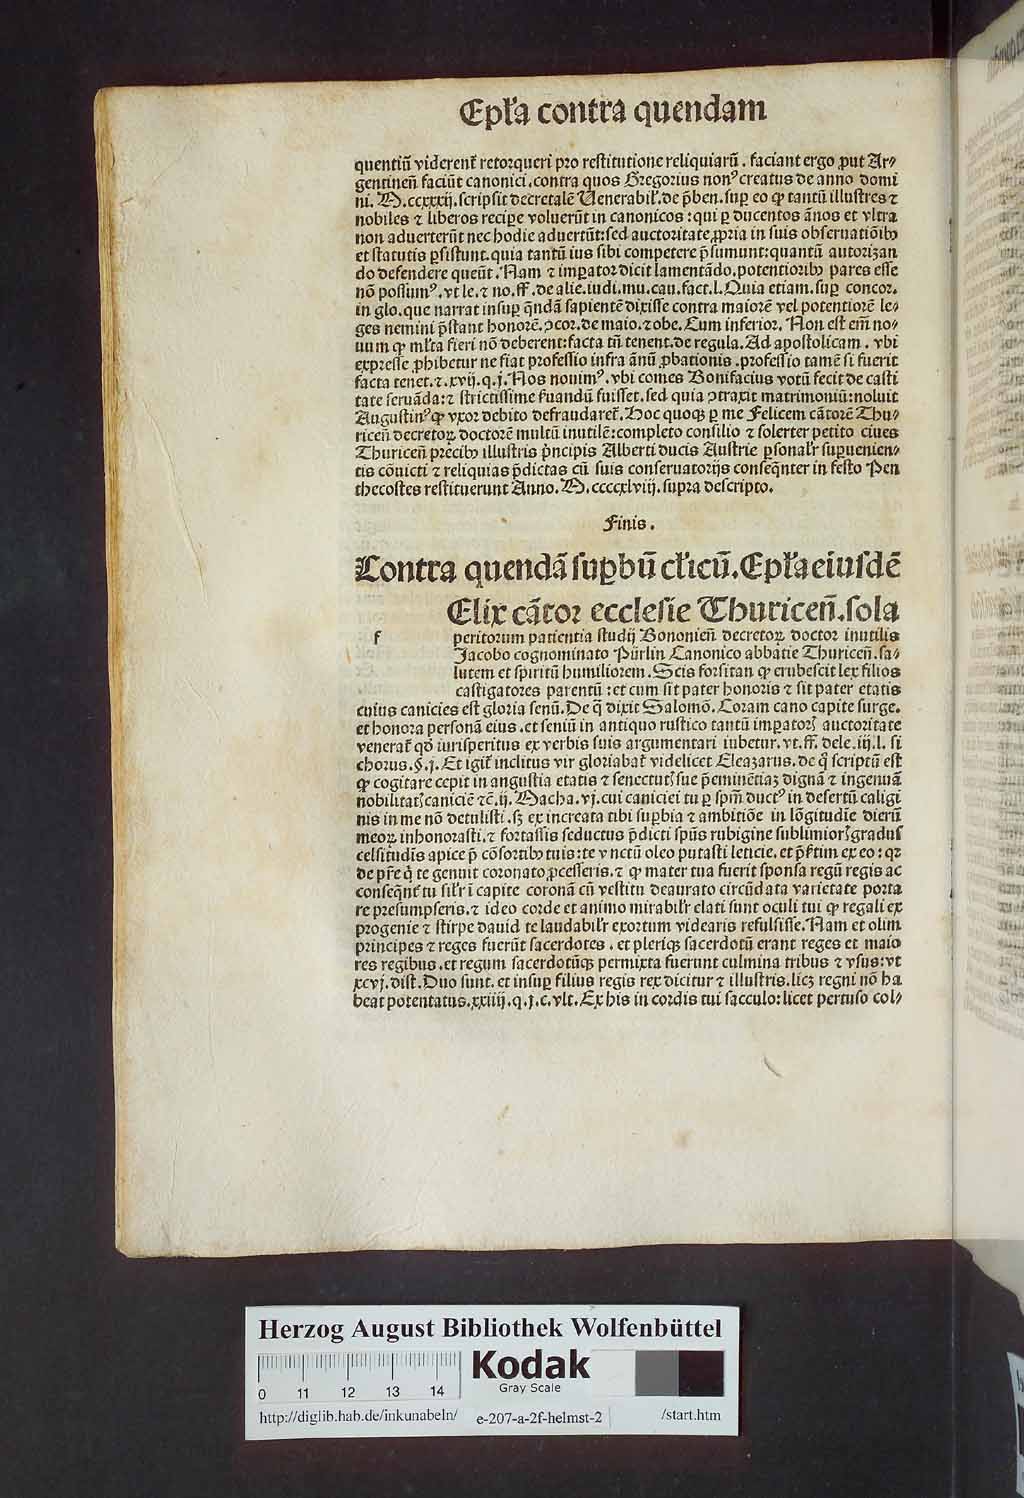 Epl̃a contra quendam
quentiũ viderent̃ retorqueri pro restitutione reliquiarũ . faciant ergo ꝓut Ar⸗
gentineñ faciũt canonici . contra quos Gregorius nonꝰ creatus de anno domi
ni. M. ccxxxij. scripsit decretalẽ Uenerabil̃. de p̃ben. suꝑ eo ꝙ tantũ illustres ⁊
nobiles ⁊ liberos recipe voluerũt in canonicos : qui ꝑ ducentos ãnos et vltra
non aduerterũt nec hodie aduertũt: sed auctoritate ꝓpria in suis obseruatiõibꝰ
et statutis ꝑsistunt. quia tantũ ius sibi competere p̃sumunt: quantũ autorizan
do defendere queũt . Nam ⁊ imꝑator dicit lamentãdo. potentioribꝰ pares esse
nõ possumꝰ. vt le. ⁊ no. ff. de alie. iudi. mu. cau. fact. l. Quia etiam. suꝑ concor.
in glo. que narrat insuꝑ q̃ndã sapientẽ dixisse contra maiorẽ vel potentiorẽ le⸗
ges nemini p̃stant honorẽ. ꝯcor. de maio. ⁊ obe. Cum inferior. Non est em̃ no⸗
uum ꝙ ml̃ta fieri nõ deberent: facta tñ tenent. de regula. Ad apostolicam . vbi
expresse ꝓhibetur ne fiat professio infra ãnũ ꝓbationis . professio tamẽ si fuerit
facta tenet. ⁊. xvij. q. j. Nos nouimꝰ. vbi comes Bonifacius votũ fecit de casti
tate seruãda: ⁊ strictissime s̃uandũ fuisset. sed quia ꝯtraxit matrimoniũ: noluit
Augustinꝰ ꝙ vxor debito defraudaret̃. Hoc quoqꝫ ꝑ me Felicem cãtorẽ Thu⸗
riceñ decretoꝝ doctorẽ multũ inutilẽ: completo consilio ⁊ solerter petito ciues
Thuriceñ p̃cibꝰ illustris p̃ncipis Alberti ducis Austrie ꝑsonal̃r suꝑuenien⸗
tis cõuicti ⁊ reliquias p̃dictas cũ suis conseruatorijs conseq̃nter in festo Pen
thecostes restituerunt Anno. M. ccccxlviij. supra descripto.
Finis .
Contra quendã suꝑbũ cl̃icũ. Epl̃a eiusdẽ
Elix cãtor ecclesie Thuriceñ. sola
f peritorum patientia studij Bononieñ decretoꝝ doctor inutilis
Jacobo cognominato Pürlin Canonico abbatie Thuriceñ. sa⸗
lutem et spiritũ humiliorem. Scis forsitan ꝙ erubescit lex filios
castigatores parentũ : et cum sit pater honoris ⁊ sit pater etatis
cuius canicies est gloria senũ. De q̃ dixit Salomõ. Coram cano capite surge.
et honora personã eius. et seniũ in antiquo rustico tantũ imꝑatorꝭ auctoritate
venerat̃ qđ iurisperitus ex verbis suis argumentari iubetur. vt. ff. dele. iij. l. si
chorus. §. j. Et igit̃ inclitus vir gloriabat̃ videlicet Eleazarus. de q̃ scriptũ est
ꝙ cogitare cepit in angustia etatis ⁊ senectutꝭ sue p̃eminẽtiaꝫ dignã ⁊ ingenuã
nobilitatꝭ caniciẽ ⁊c̃. ij. Macha. vj. cui caniciei tu ꝑ spm̃ ductꝰ in desertũ caligi
nis in me nõ detulisti . sꝫ ex increata tibi suꝑbia ⁊ ambitiõe in lõgitudĩe dierũ
meoꝝ inhonorasti. ⁊ fortassis seductus p̃dicti spũs rubigine sublimiorꝭ gradus
celsitudĩs apice p̃ cõsortibꝰ tuis: te vnctũ oleo putasti leticie. et p̃s̃tim ex eo : qꝛ
de pr̃e q̃ te genuit coronato ꝓcesseris. ⁊ ꝙ mater tua fuerit sponsa regũ regis ac
conseq̃nt̃ tu sil̃r ĩ capite coronã cũ vestitu deaurato circũdata varietate porta
re presumpseris. ⁊ ideo corde et animo mirabil̃r elati sunt oculi tui ꝙ regali ex
progenie ⁊ stirpe dauid te laudabil̃r exortum videaris refulsisse. Nam et olim
principes ⁊ reges fuerũt sacerdotes . et pleriqꝫ sacerdotũ erant reges et maio
res regibus. et regum sacerdotũqꝫ permixta fuerunt culmina tribus ⁊ vsus: vt
xcvj. dist. Duo sunt. et insuꝑ filius regis rex dicitur ⁊ illustris. licꝫ regni nõ ha
beat potentatus. xxiiij. q. j. c. vlt. Ex his in cordis tui sacculo: licet pertuso col⸗
Herzog August Bibliothek Wolfenbüttel
Kodak
Gray Scale
0 11 12 13 14
http://diglib.hab.de/inkunabeln/ e-207-a-2f-helmst-2 /start.htm